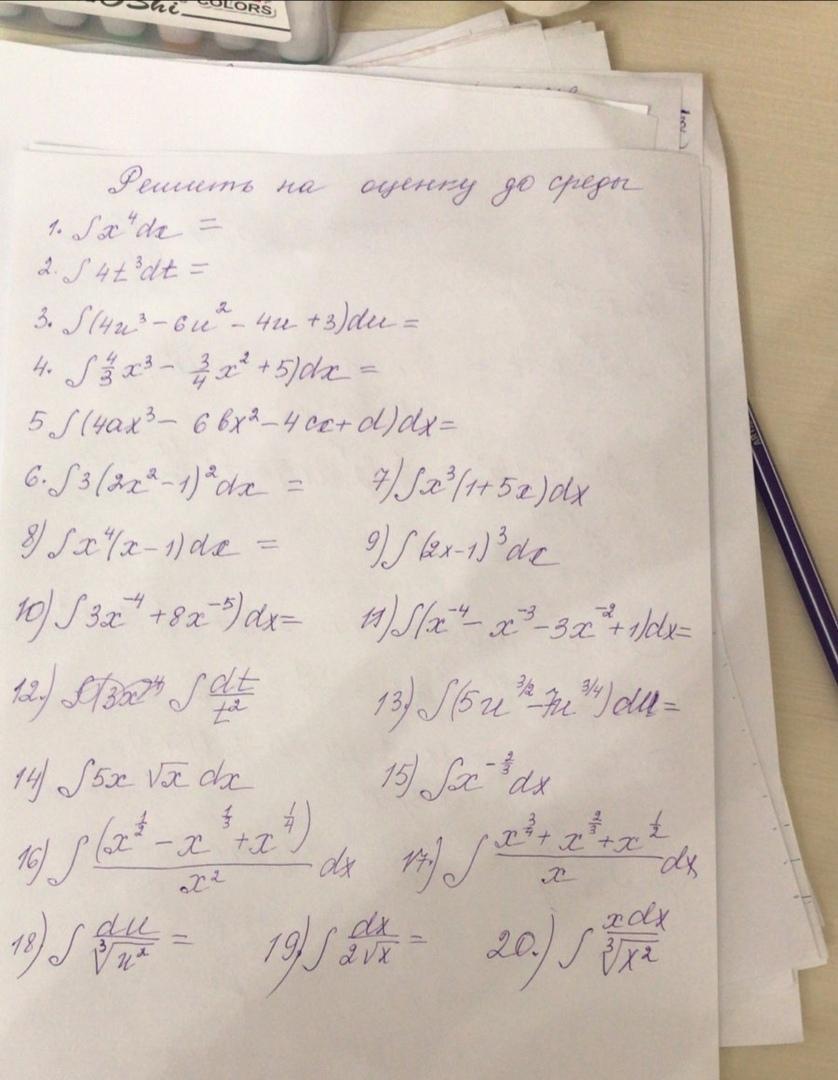 Shi COLORS
Решить на оценку до среды
1. ∫x⁴dx =
2. ∫4t³dt =
3. ∫(4u³ - 6u² - 4u + 3)du =
4. ∫4/3 x³ - 3/4 x² + 5)dx =
5 ∫(4ax³ - 6bx² - 4cx + d)dx =
6. ∫3(2x² - 1)²dx = 7) ∫x³(1 + 5x)dx
8) ∫x⁴(x - 1)dx = 9) ∫(2x - 1)³dx
10) ∫3x⁻⁴ + 8x⁻⁵)dx = 11) ∫(x⁻⁴ - x⁻³ - 3x⁻² + 1)dx =
12.) ∫dt/t² 13) ∫(5u^(3/2) - 7u^(3/4))du =
14) ∫5x √x dx 15) ∫x^(-2/3) dx
16) ∫(x^(1/2) - x^(1/3) + x^(1/4))/x² dx 17.) ∫(x^(3/4) + x^(2/3) + x^(1/2))/x dx
18) ∫du/∛u² = 19) ∫dx/2√x = 20.) ∫xdx/∛x²